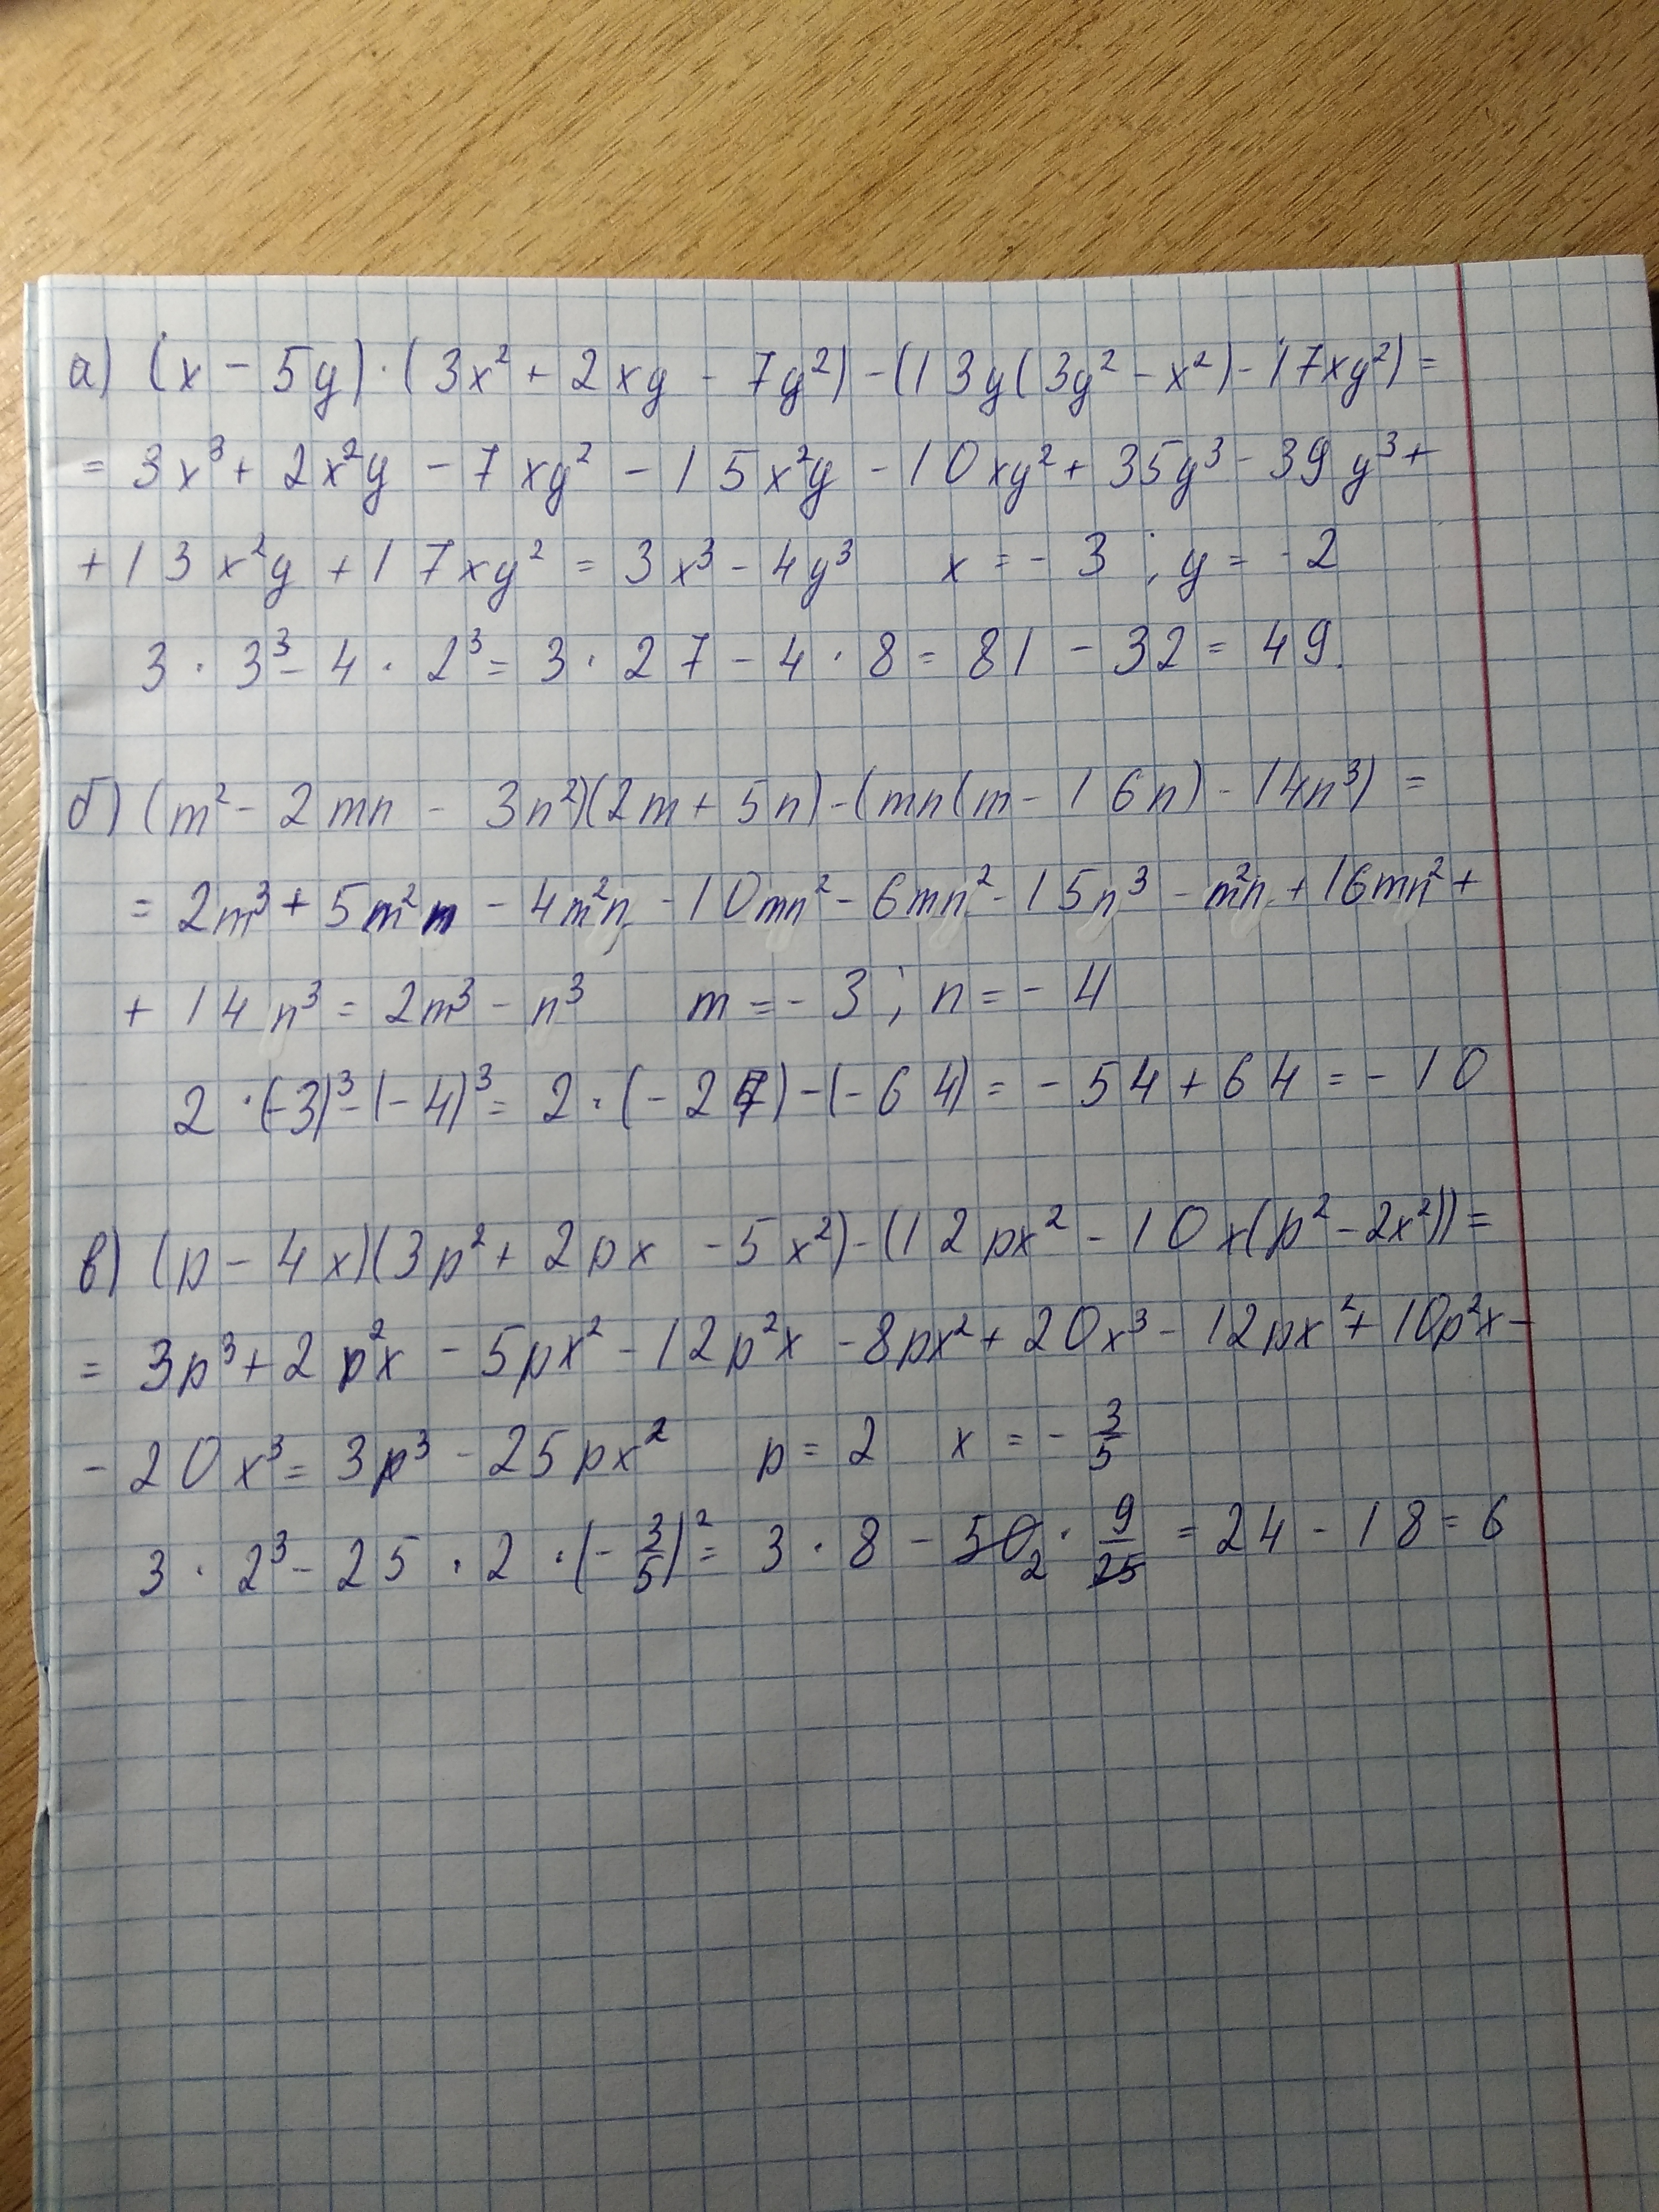 а) (x - 5y)·(3x² + 2xy - 7y²) - (13y(3y² - x²) - 17xy²) =
= 3x³ + 2x²y - 7xy² - 15x²y - 10xy² + 35y³ - 39y³ +
+ 13x²y + 17xy² = 3x³ - 4y³ x = - 3 ; y = - 2
3 · 3³ - 4 · 2³ = 3 · 27 - 4 · 8 = 81 - 32 = 49.
б) (m² - 2mn - 3n²)(2m + 5n) - (mn(m - 16n) - 14n³) =
= 2m³ + 5m²n - 4m²n - 10mn² - 6mn² - 15n³ - m²n + 16mn² +
+ 14n³ = 2m³ - n³ m = - 3 ; n = - 4
2 · (-3)³ - (-4)³ = 2 · (-27) - (-64) = - 54 + 64 = - 10
в) (p - 4x)(3p² + 2px - 5x²) - (12px² - 10x(p² - 2x²)) =
= 3p³ + 2p²x - 5px² - 12p²x - 8px² + 20x³ - 12px² + 10p²x -
- 20x³ = 3p³ - 25px² p = 2 x = - 3/5
3 · 2³ - 25 · 2 · (- 3/5)² = 3 · 8 - 50 2 · 9/25 = 24 - 18 = 6